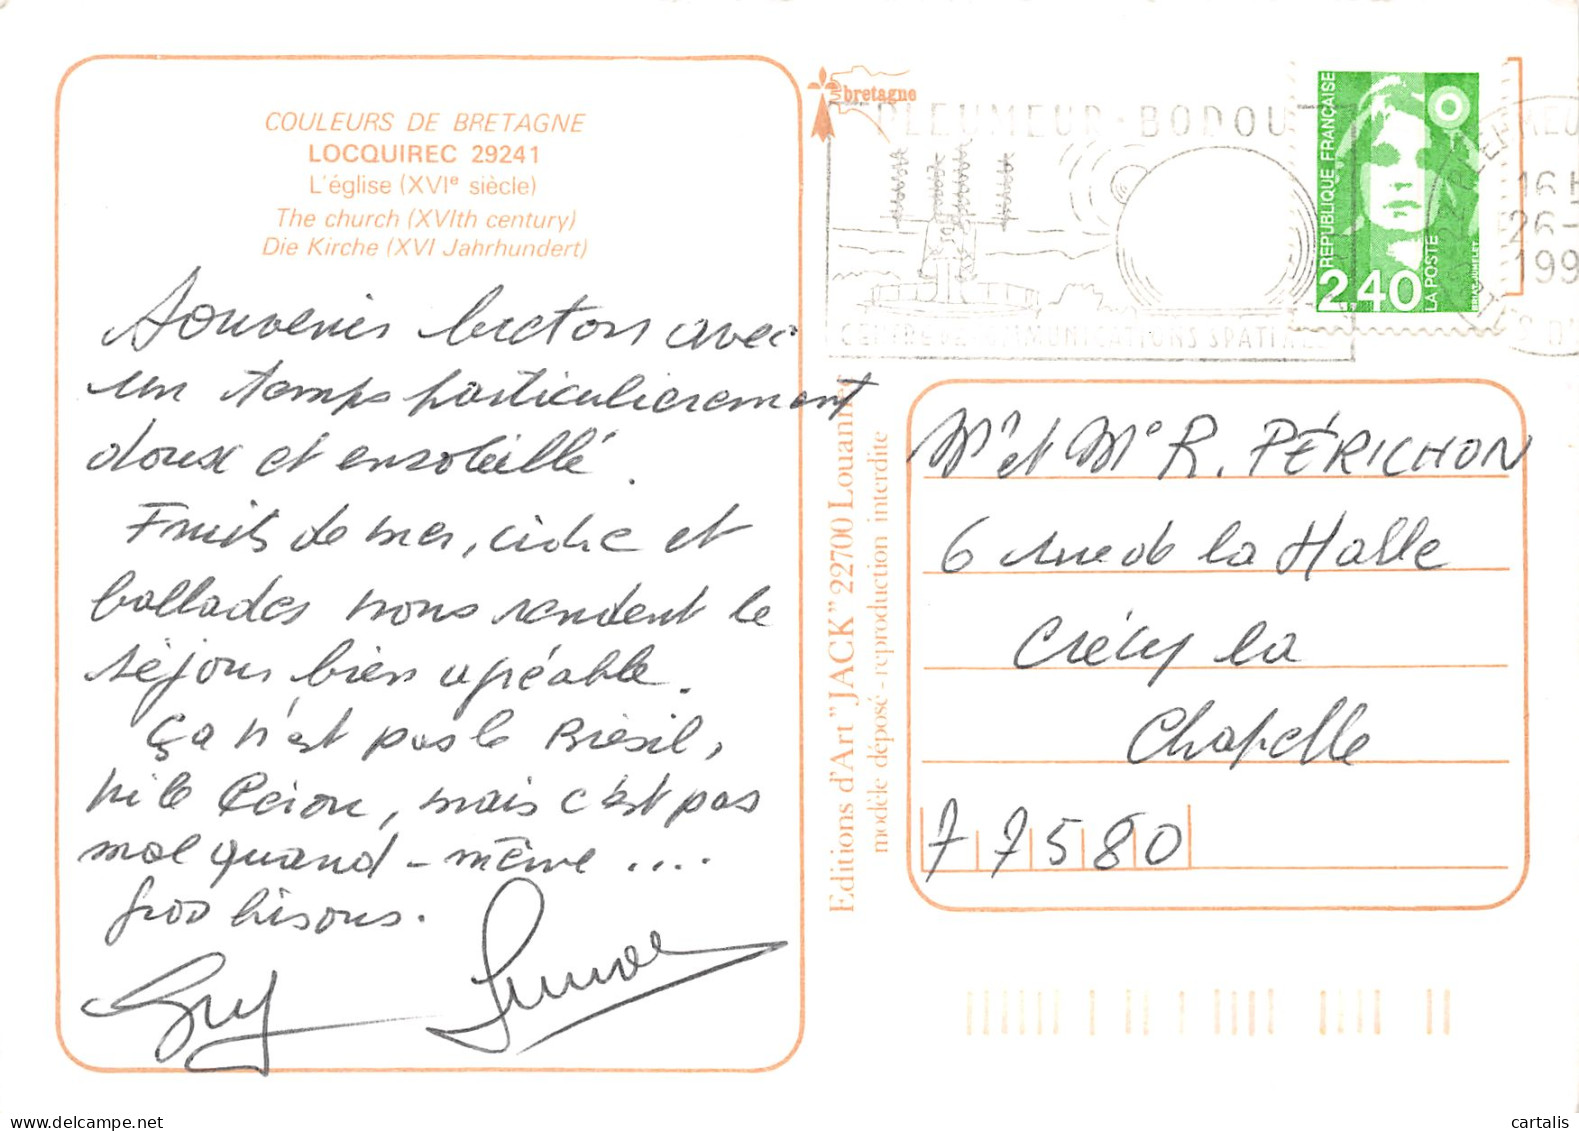 COULEURS DE BRETAGNE
LOCQUIREC 29241
L'église (XVIe siècle)
The church (XVIth century)
Die Kirche (XVI Jahrhundert)
Souvenirs bretons avec
un temps particulièrement
doux et ensoleillé.
Fruits de mer, cidre et
ballades nous rendent le
séjour bien agréable.
Ça n'est pas le Brésil,
ni le Pérou, mais c'est pas
mal quand-même ....
gros bisous.
Guy
bretagne
PLEUMEUR-BODOU
CENTRE DE COMMUNICATIONS SPATIALES
REPUBLIQUE FRANÇAISE
LA POSTE
2,40
BRIAT-JUMELET
16 H
26-
199
Editions d'Art "JACK" 22700 Louannec
modèle déposé - reproduction interdite
Mr et Me R. PÉRICHON
6 rue de la Halle
Crécy la
Chapelle
77580
cartalis